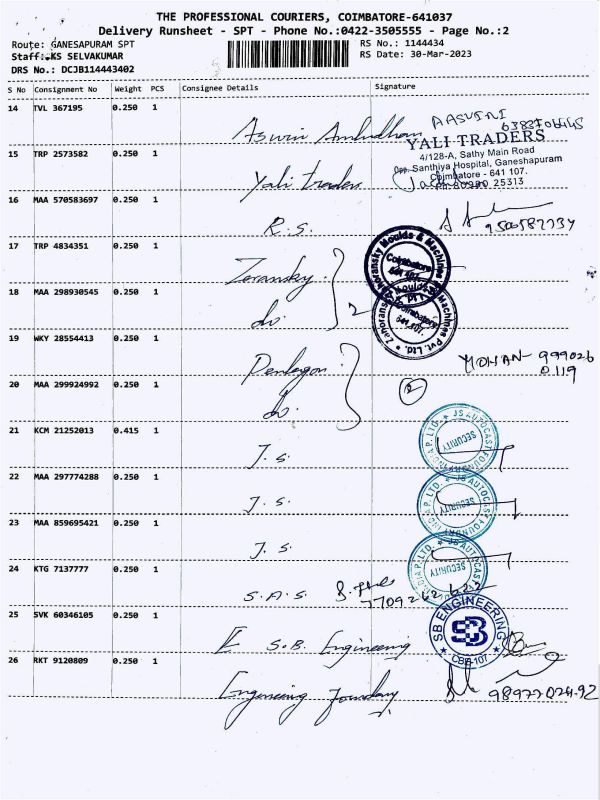 THE PROFESSIONAL COURIERS, COIMBATORE-641037
Delivery Runsheet - SPT - Phone No.:0422-3505555 - Page No.:2
Route: GANESAPURAM SPT
RS No.: 1144434
Staff: KS SELVAKUMAR
RS Date: 30-Mar-2023
DRS No.: DCJB114443402
S No Consignment No Weight PCS Consignee Details Signature
14 TVL 367195 0.250 1
Aswin Amludhan
AASVINI
YALI TRADERS
4/128-A, Sathy Main Road
Opp. Santhiya Hospital, Ganeshapuram
Coimbatore - 641 107.
25313
15 TRP 2573582 0.250 1
Yali traders
16 MAA 570583697 0.250 1
R.S.
17 TRP 4834351 0.250 1
Zoransky
Zahoransky Moulds & Machines
Coimbatore
641 107.
18 MAA 298930545 0.250 1
do. 2
Zahoransky Moulds & Machines Pvt. Ltd.
Coimbatore
641 107.
19 WKY 28554413 0.250 1
Pentagon
MOHAN - 999026
0119
20 MAA 299924992 0.250 1
do. 2
21 KCM 21252013 0.415 1
J.S.
JS AUTOCAST FOUNDRY INDIA P. LTD.
SECURITY
22 MAA 297774288 0.250 1
J.S.
JS AUTOCAST FOUNDRY INDIA P. LTD.
SECURITY
23 MAA 859695421 0.250 1
J.S.
JS AUTOCAST INDIA P. LTD.
SECURITY
24 KTG 7137777 0.250 1
S.A.S.
25 SVK 60346105 0.250 1
S.B. Engineering
SB ENGINEERING
SB
CBE-107
26 RKT 9120809 0.250 1
Engineering Foundary